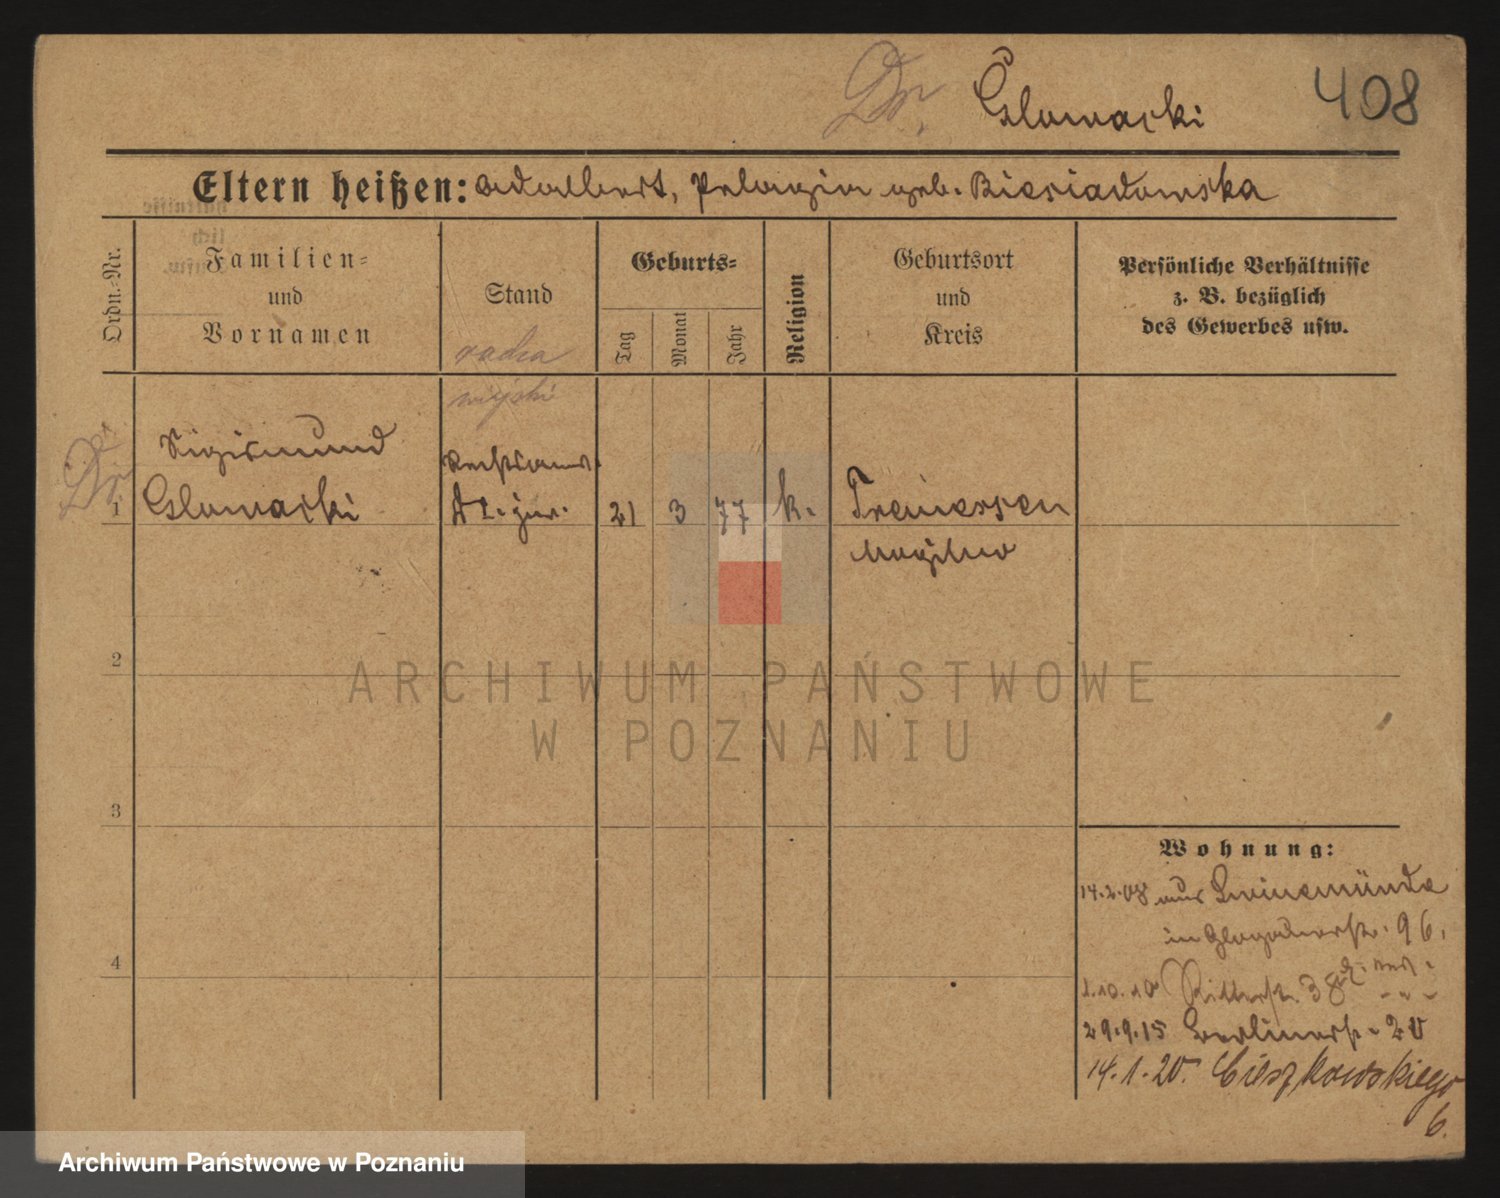 Dr. Glowacki 408
Eltern heißen: Adalbert, Pelagia geb. Biesiadowska
Ordn.-Nr.
Familien-
und
Vornamen
Stand
Geburts-
Tag
Monat
Jahr
Religion
Geburtsort
und
Kreis
Persönliche Verhältnisse
z. B. bezüglich
des Gewerbes usw.
radca
miejski
Sigismund
Rechtsanw.
Dr
1 Glowacki
jur. 21 3 77 k. Tremessen
Mogilno
2
ARCHIWUM PAŃSTWOWE
W POZNANIU
3
Wohnung:
14.2.08 aus Swinemünde
in Glogauerstr. 96.
1.10.10 Ritterstr. 38
29.9.15 Berlinerstr. 20
4
14.1.20. Cieszkowskiego
6.
Archiwum Państwowe w Poznaniu